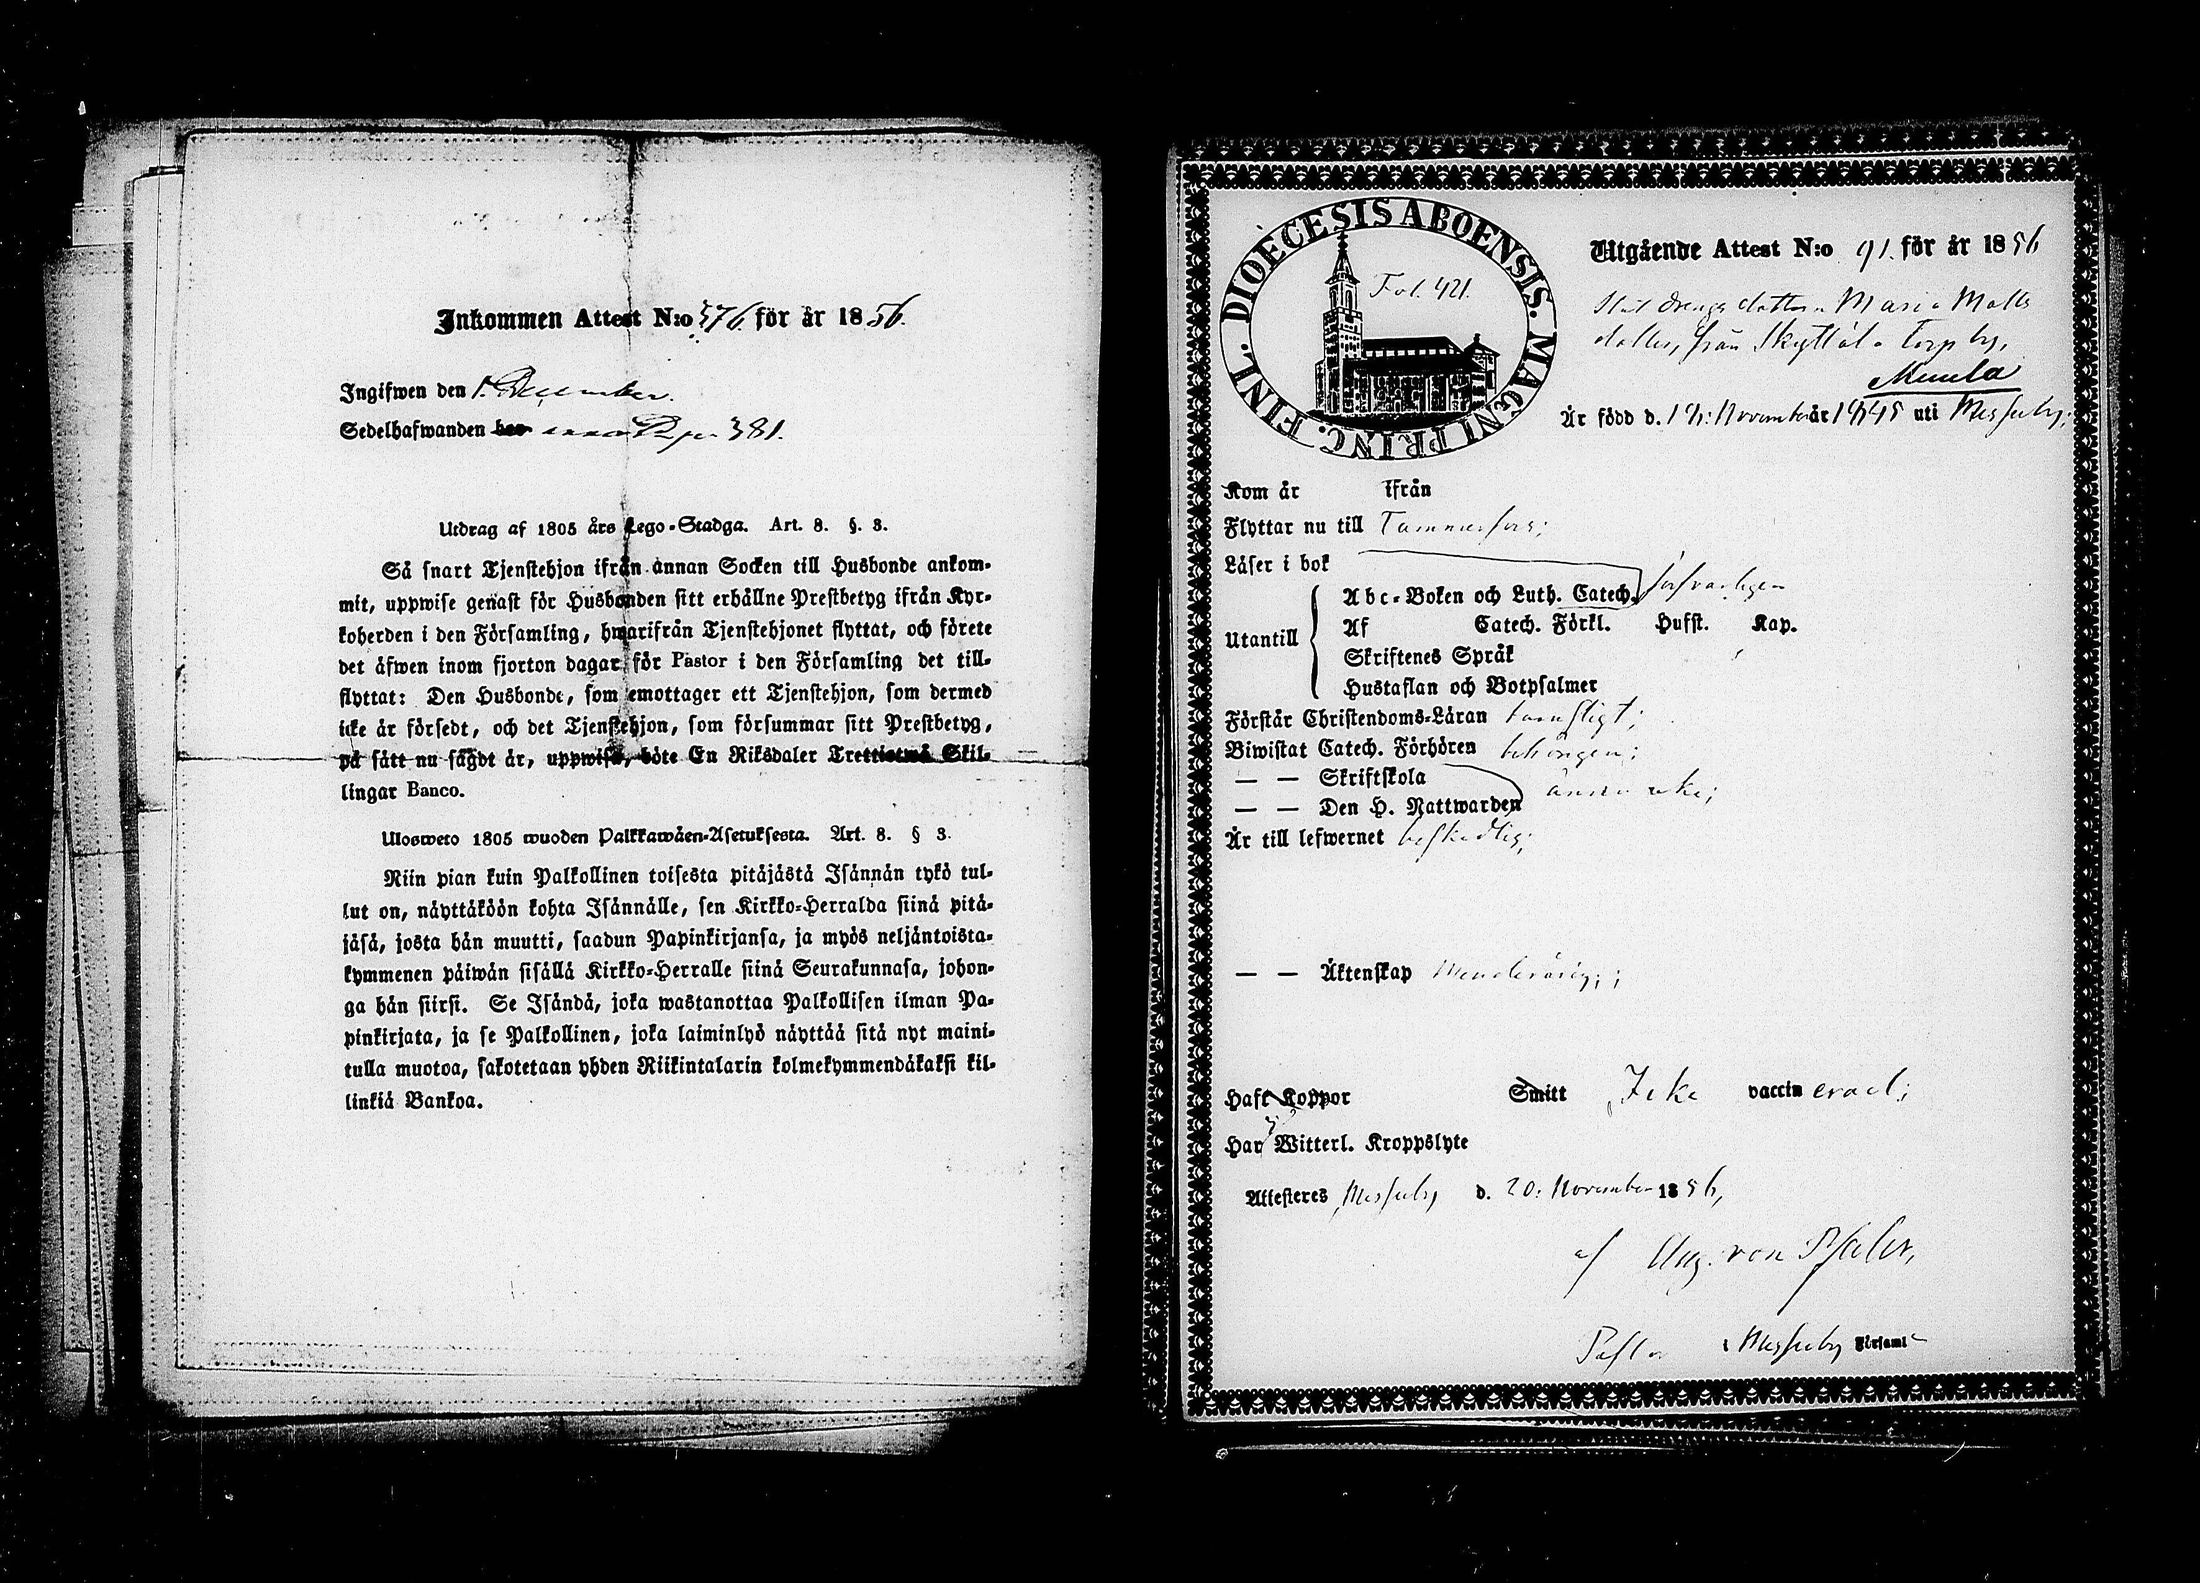 Inkommen Attest N:o 376 för år 1856.
Ingifwen den 1. December.
Sedelhafwanden har 381.
Utdrag af 1805 års Lego-Stadga. Art. 8. §. 3.
Så snart Tjenstehjon ifrån annan Socken till Husbonde ankom-
mit, uppwise genast för Husbonden sitt erhållne Prestbetyg ifrån Kyr-
koherden i den Församling, hwarifrån Tjenstehjonet flyttat, och förete
det äfwen inom fjorton dagar för Pastor i den Församling det till-
flyttat: Den Husbonde, som emottager ett Tjenstehjon, som dermed
icke är försedt, och det Tjenstehjon, som försummar sitt Prestbetyg,
på sätt nu sagdt är, uppwisa, böte En Riksdaler Trettiotwå Skil-
lingar Banco.
Ulosweto 1805 wuoden Palkkawäen-Asetuksesta. Art. 8. § 3.
Niin pian kuin Palkollinen toisesta pitäjästä Isännän tykö tul-
lut on, näyttäköön kohta Isännälle, sen Kirkko-Herralda siinä pitä-
jäsä, josta hän muutti, saadun Papinkirjansa, ja myös neljäntoista-
kymmenen päiwän sisällä Kirkko-Herralle siinä Seurakunnasa, johon-
ga hän siirsi. Se Isändä, joka wastanottaa Palkollisen ilman Pa-
pinkirjata, ja se Palkollinen, joka laiminlyö näyttää sitä nyt maini-
tulla muotoa, sakotetaan yhden Riikintalarin kolmekymmendäkaksi kil-
linkiä Bankoa.
DIOECESIS ABOENSIS. MAGNI PRINC. FINL.
Fol. 421.
Utgående Attest N:o 91. för år 1856
drengs dottern Maria Matts
dotter, från Skyttälä Torp by,
Är född d. November år 1845 uti Messuby;
Kom år ifrån
Flyttar nu till Tammerfors;
Läser i bok
Abc-Boken och Luth. Catech. försvarligen
Utantill Af Catech. Förkl. Husst. Kap.
Skriftenes Språk
Hustaflan och Botpsalmer
Förstår Christendoms-Läran
Biwistat Catech. Förhören behörigen;
— — Skriftskola
— — Den H. Nattwarden ännu icke;
Är till lefwernet beskedlig;
— — Äktenskap Minderårig;
Haft Koppor Smitt Icke vaccinerad;
Har Witterl. Kroppslyte
Attesteres Messuby d. 20: November 1856,
af Aug. von Pfaler,
Pastor i Messuby Församl